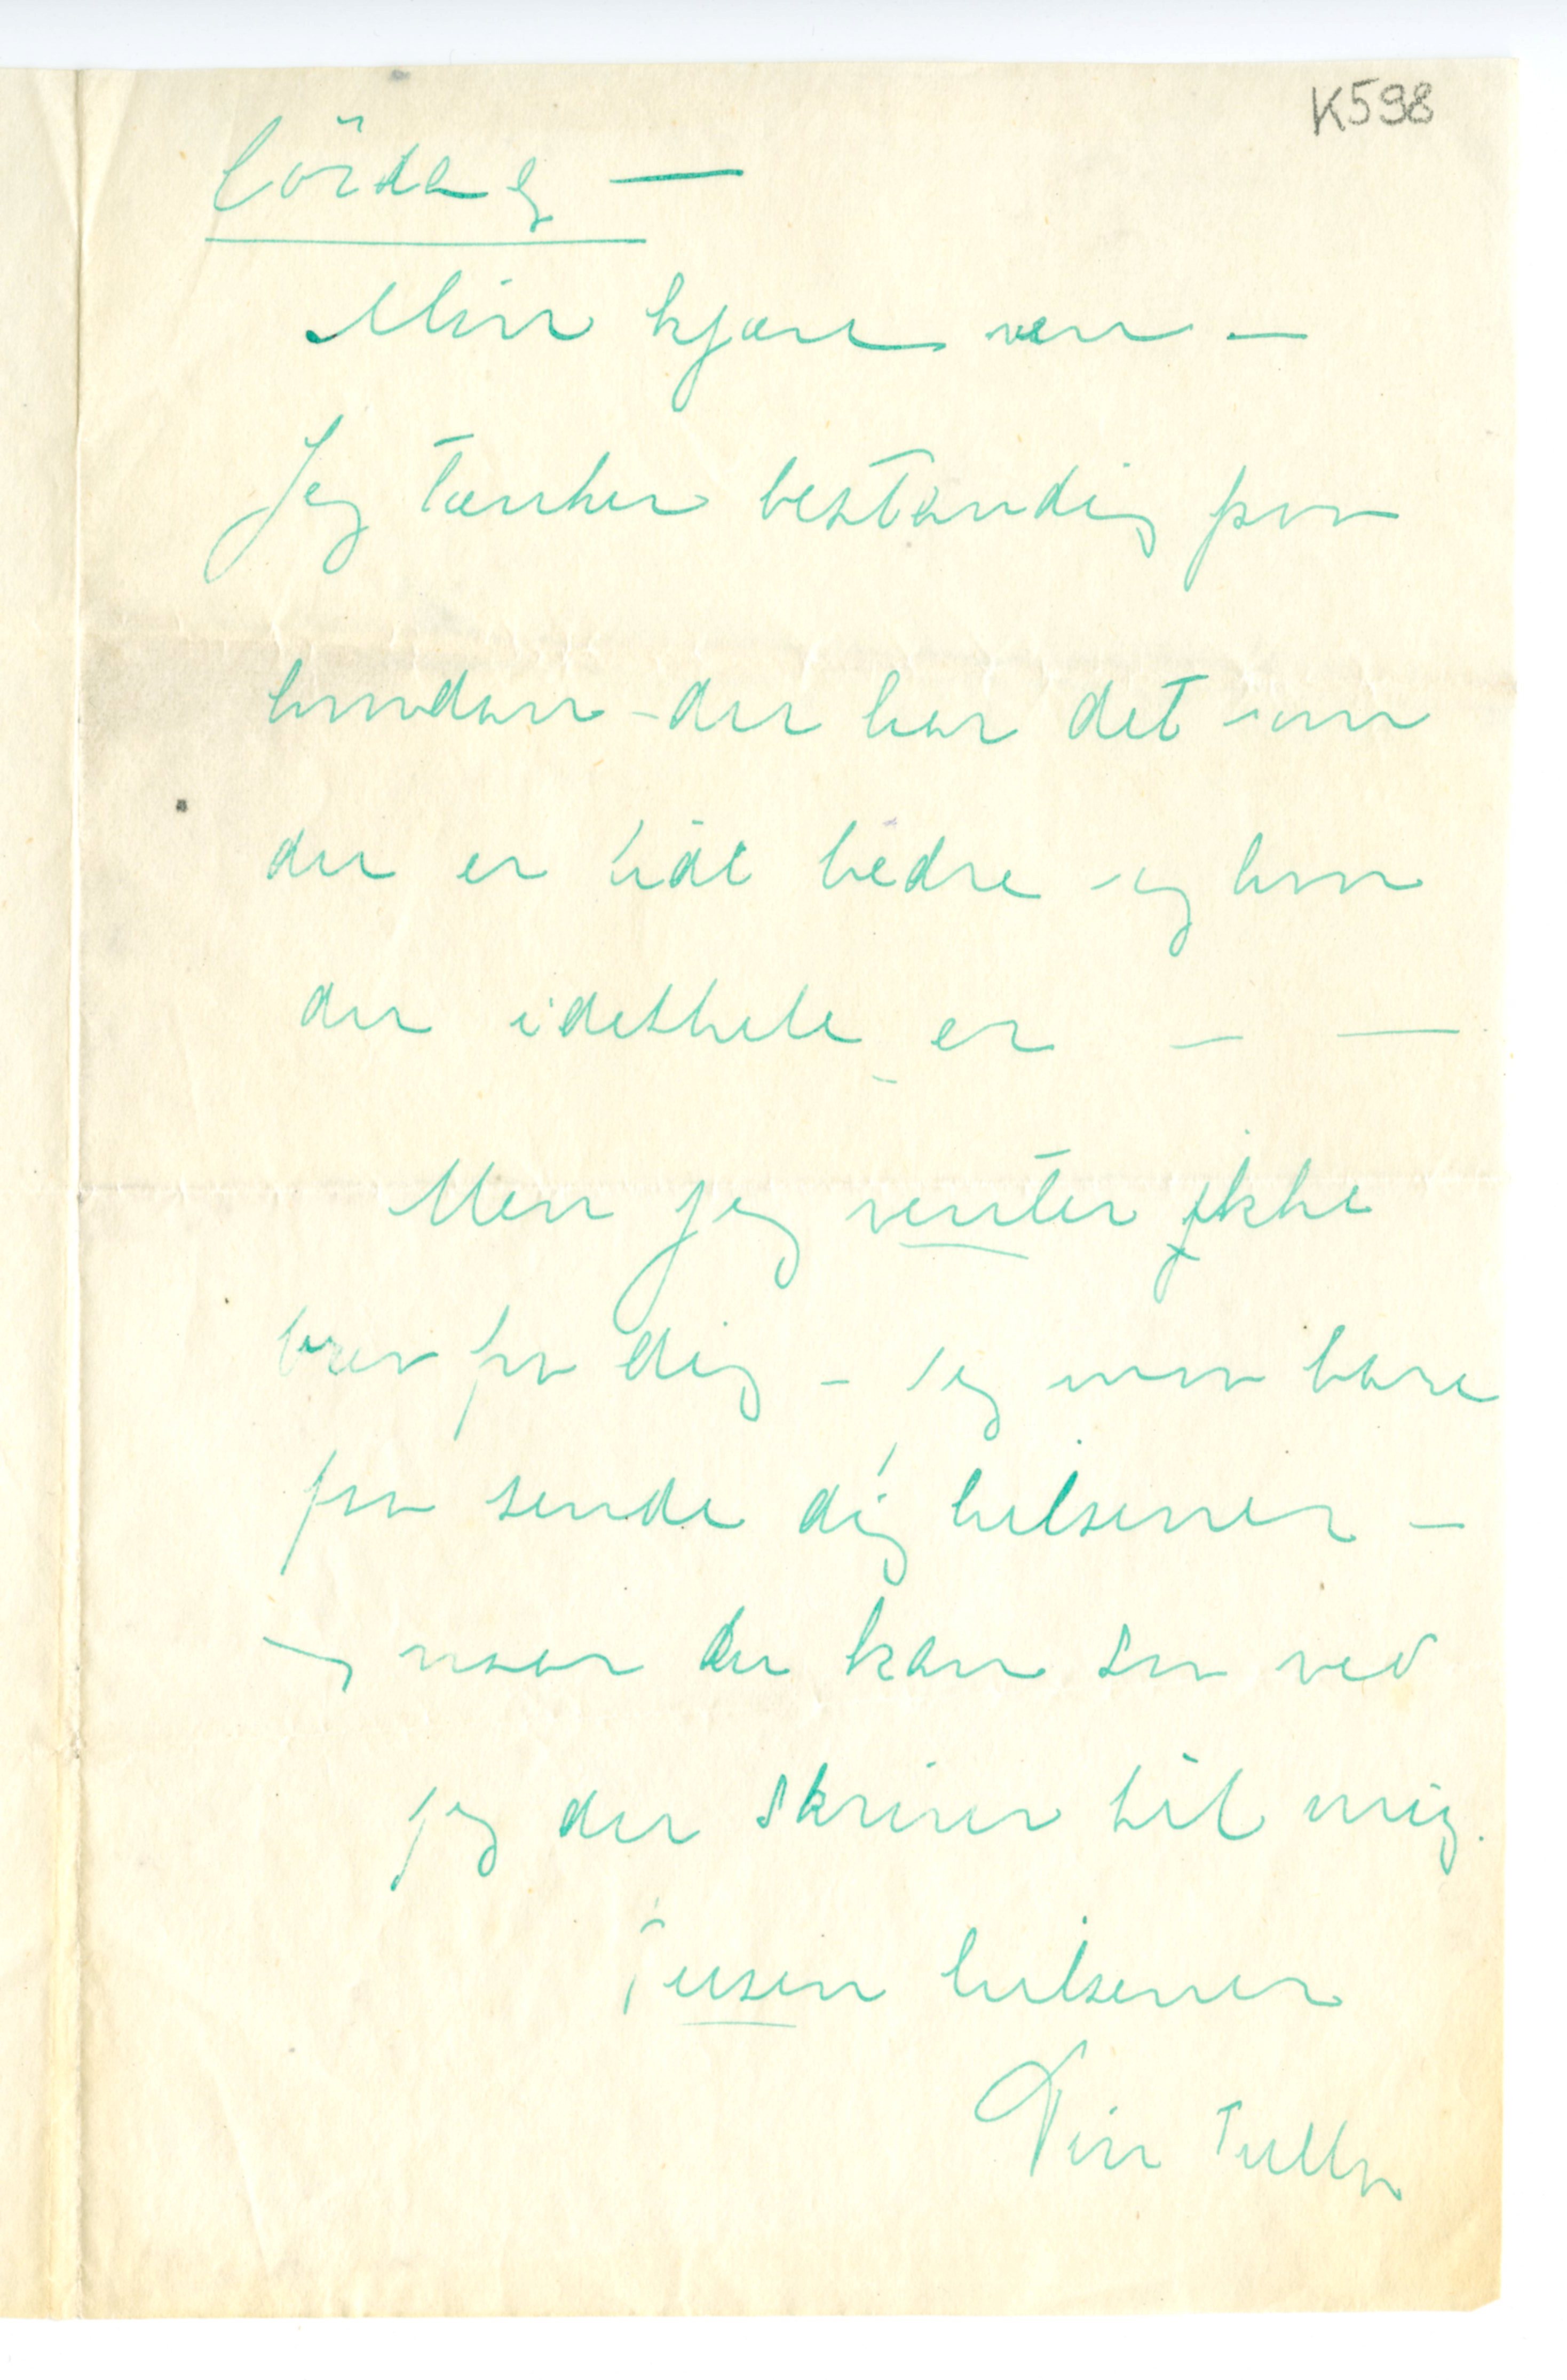 K598
Lördag —
Min kjære ven —
Jeg tænker bestandig paa
hvordan du har det – om
du er lidt bedre – og hvor
du idethele er – —
Men jeg venter ikke
brev fra dig – jeg maa bare
faa sende dig hilsener –
og naar du kan saa ved
jeg du skriver til mig.
Tusen hilsener
Din Tulla